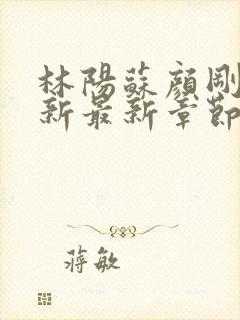 林陽蘇顏剛
新最新章節
蔣敏